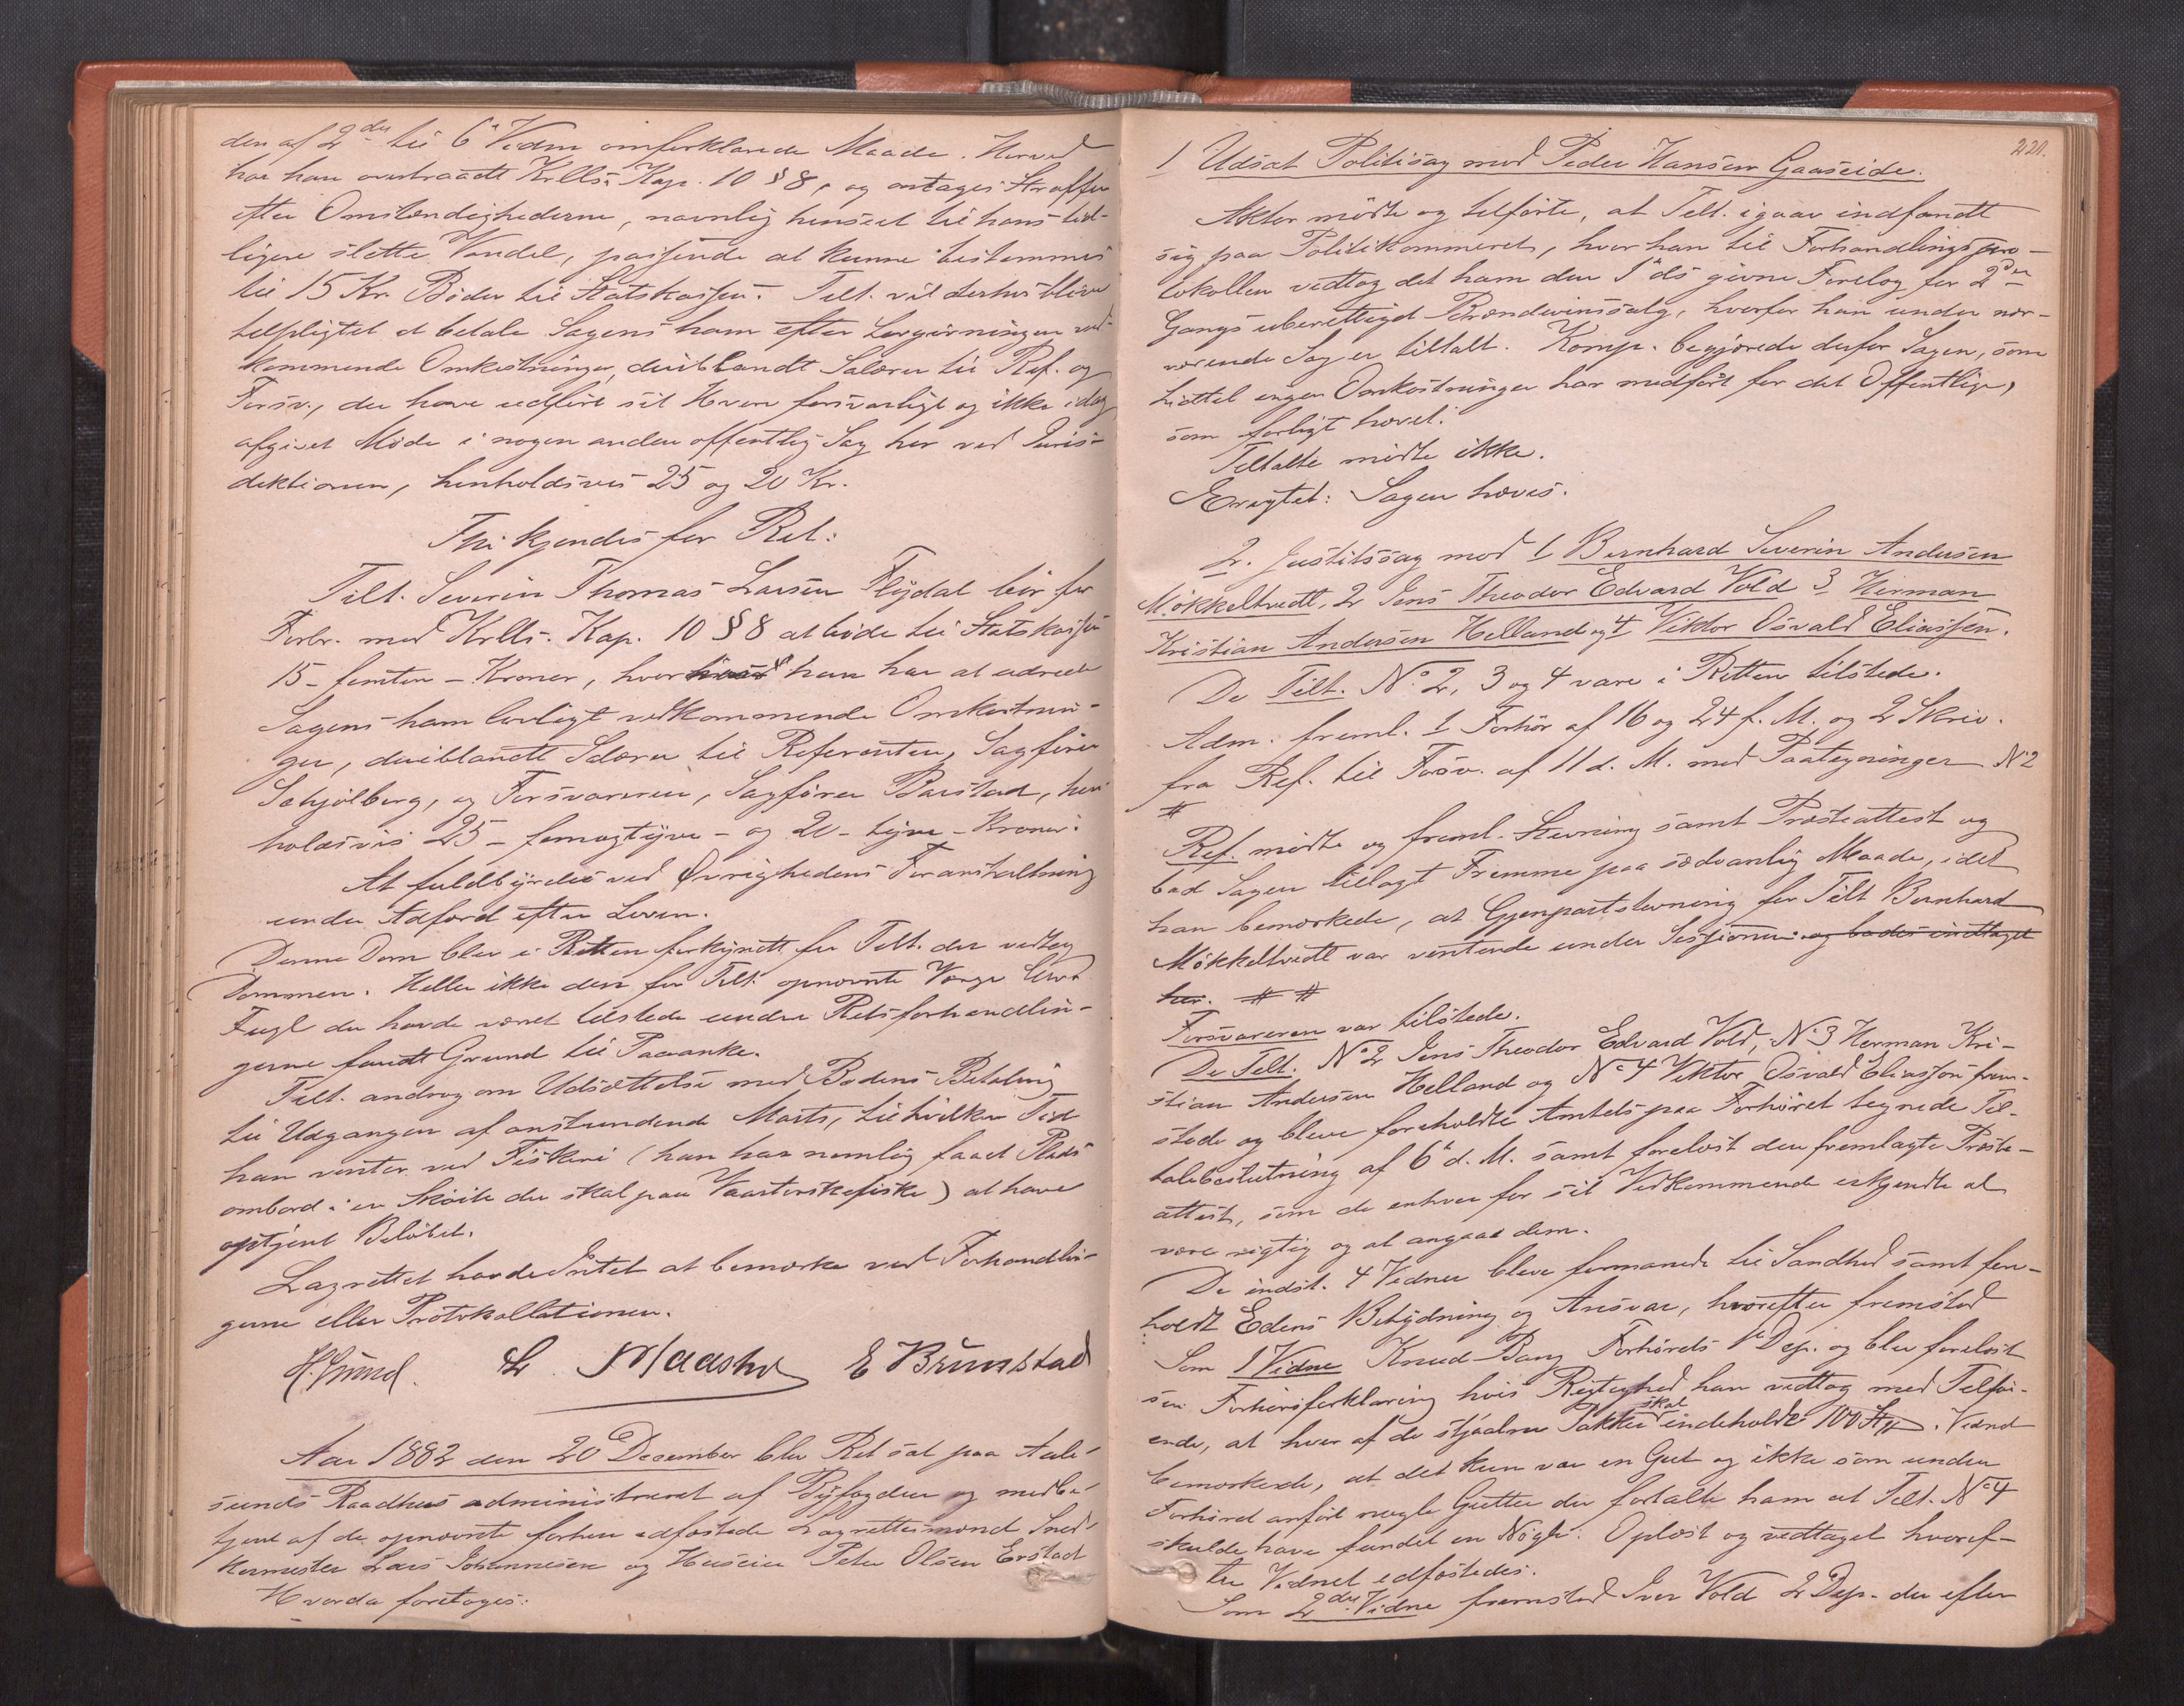 den af 2den til 6te Vidne omforklarede Maade. Herved
har han overtraadt Krlls. Kap. 10 § 8, og antages Straffen
efter Omstændighederne, navnlig henseet til hans tid-
ligere slette Vandel, passende at kunne bestemmes
til 15 Kr. Bøder til Statskassen. Tilt. vil derhos blive
tilpligtet at betale Sagens ham efter Lovgivningen ved-
kommende Omkostninger, deriblandt Salærer til Ref. og
Forsv., der have udført sit Hverv forsvarligt og ikke idag
afgivet Møde i nogen anden offentlig Sag her ved Juris-
diktionen, henholdsvis 25 og 20 Kr.
Thi kjendes for Ret:
Tilt. Severin Thomas Larsen Fløjdal bør for
Forbr. mod Krlls. Kap. 10 § 8 at bøde til Statskassen
15 - femten - Kroner, hvorhos han har at udrede
Sagens ham lovligt vedkommende Omkostnin-
ger, deriblandt Salærer til Referenten, Sagfører
Schjølberg, og Forsvareren, Sagfører Barstad, hen-
holdsvis 25 - femogtyve - og 20 - tyve - Kroner.
At fuldbyrdes ved Øvrighedens Foranstaltning
under Adfærd efter Loven.
Denne Dom blev i Retten forkyndt for Tilt. der vedtog
Dommen. Heller ikke den for Tilt. opnævnte Værge
Fugl der havde været tilstede under Retsforhandlin-
gerne fandt Grund til Paaanke.
Tilt. androg om Udsættelse med Bødens Betaling
til Udgangen af anstundende Marts, til hvilken Tid
han venter ved Fiskeri (han har nemlig faaet Plads
ombord i en Skøite der skal paa Vaartorskefiske) at have
optjent Beløbet.
Lagrettet havde Intet at bemærke ved Forhandlin-
gerne eller Protokollationen.
L. Maasho E Brunstad
Aar 1882 den 20 December blev Ret sat paa Aale-
sunds Raadhus administreret af Byfogden og medbe-
tjent af de opnævnte forhen edfæstede Lagrettesmænd Sned-
kermester Lars Johannesen og Huseier Peter Olsen Erstad
Hvorda foretoges:
221.
1 Udsat Politisag mod Peder Hansen Gaaseide.
Aktor mødte og tilførte, at Tilt. igaar indfandt
sig paa Politikammeret, hvor han til Forhandlingspro-
tokollen vedtog det ham den 1ste ds. givne Forelæg for 2den
Gangs uberettiget Brændevinssalg, hvorfor han under nær-
værende Sag er tiltalt. Komp. begjærede derfor Sagen, som
hidtil ingen Omkostninger har medført for det Offentlige,
som forligt hævet.
Tiltalte mødte ikke.
Eragtet: Sagen hæves.
2. Justitssag mod 1 Bernhard Severin Andersen
Møkkeltvedt, 2 Jens Theodor Edvard Vold 3 Herman
Kristian Andersen Helland og 4 Viktor Osvald Eliassen.
De Tilt. No 2, 3 og 4 vare i Retten tilstede.
Adm. freml. 1 Forhør af 16 og 24 f. M. og 2 Skriv.
fra Ref. til Forsv. af 11 d. M. med Paategninger No 2
#
Ref. mødte og freml. Stevning samt Præsteattest og
bad Sagen tillagt Fremme paa sædvanlig Maade, idet
han bemærkede, at Gjenpartstevning for Tilt Bernhard
Møkkeltvedt var ventende under Sessionen og bades indtaget
her. # #
Forsvareren var tilstede.
De Tilt. No 2 Jens Theodor Edvard Vold, No 3 Herman Kri-
stian Andersen Helland og No 4 Viktor Osvald Eliassen frem-
stode og bleve foreholdte Amtets paa Forhøret tegnede Til-
talebeslutning af 6te d. M. samt forelæst den fremlagte Præste-
attest, som de enhver for sit Vedkommende erkjendte at
være rigtig og at angaa dem.
De indst. 4 Vidner bleve formanede til Sandhed samt fore-
holdt Edens Betydning og Ansvar, hvorefter fremstod
Som 1 Vidne Knud Bang Forhørets 1ste Dep. og blev forelæst
sin Forhørsforklaring hvis Rigtighed han vedtog med Tilføi-
ende, at hver af de stjaalne Pakker skal indeholdt 100 St. Vidnet
bemærkede, at det kun var en Gut og ikke som under
Forhøret anført nogle Gutter der fortalte ham at Tilt. No 4
skulde have fundet en Nøgle. Oplæst og vedtaget hvoref-
ter Vidnet edfæstedes.
Som 2det Vidne fremstod Iver Vold 2 Dep. der efter